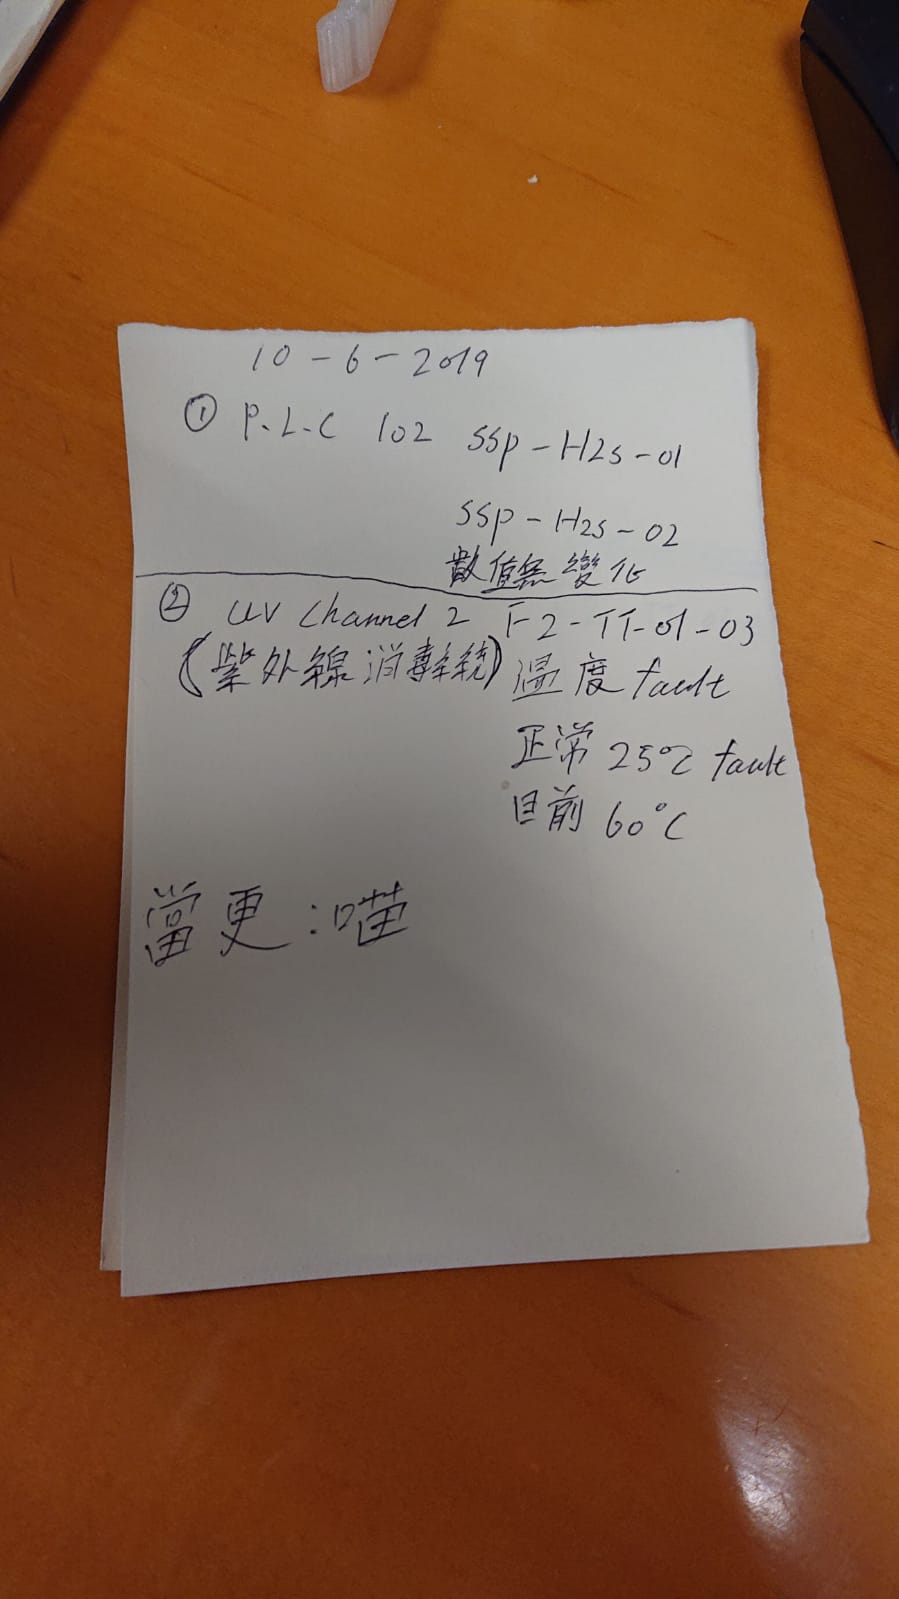 10-6-2019
① P.L.C 102 SSP-H2S-01
SSP-H2S-02
數值無變化
② UV Channel 2 F2-TT-01-03
(紫外線消毒系統) 溫度 fault
正常 25℃ fault
目前 60°C
當更:喵